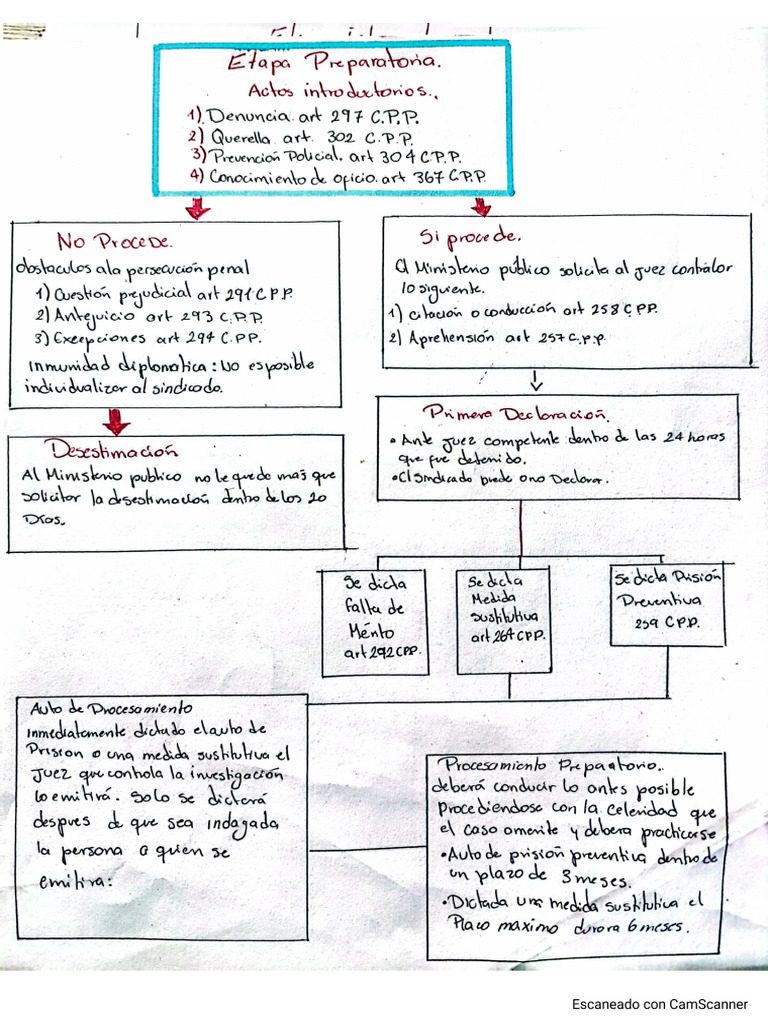 Etapa Preparatoria.
Actos introductorios.
1) Denuncia art 297 C.P.P.
2) Querella art. 302 C.P.P.
3) Prevención Policial. art 304 C.P.P.
4) Conocimiento de oficio. art 367 C.P.P
No Procede.
Obstaculos a la persecución penal
1) Cuestión prejudicial art 291 C.P.P.
2) Antejuicio art 293 C.P.P.
3) Excepciones art 294 C.PP.
Inmunidad diplomatica: No es posible
individualizar al sindicado.
Desestimación
Al Ministerio publico no le quede mas que
solicitar la desestimación dentro de los 20
Días.
Si procede.
El Ministerio público solicita al juez contralor
lo siguiente.
1) Citación o conducción art 258 C.PP.
2) Aprehensión art 257 C.p.p.
Primera Declaración.
• Ante juez competente dentro de las 24 horas
que fue detenido.
• El Sindicado puede o no Declarar.
Se dicta
falta de
Mérito
art 292 CPP.
Se dicta
Medida
sustitutiva
art 264 CPP.
Se dicta Prisión
Preventiva
259 C.P.P.
Auto de Procesamiento
inmediatamente dictado el auto de
Prision o una medida sustitutiva el
Juez que controla la investigación
lo emitirá. Solo se dictará
despues de que sea indagada
la persona a quien se
emitira:
Procesamiento Preparatorio.
deberá conducir lo antes posible
Procediendose con la celeridad que
el caso amerite y debera practicarse
• Auto de prisión preventiva dentro de
un plazo de 3 meses.
• Dictada una medida sustitutiva el
Plazo maximo durora 6 meses.
Escaneado con CamScanner